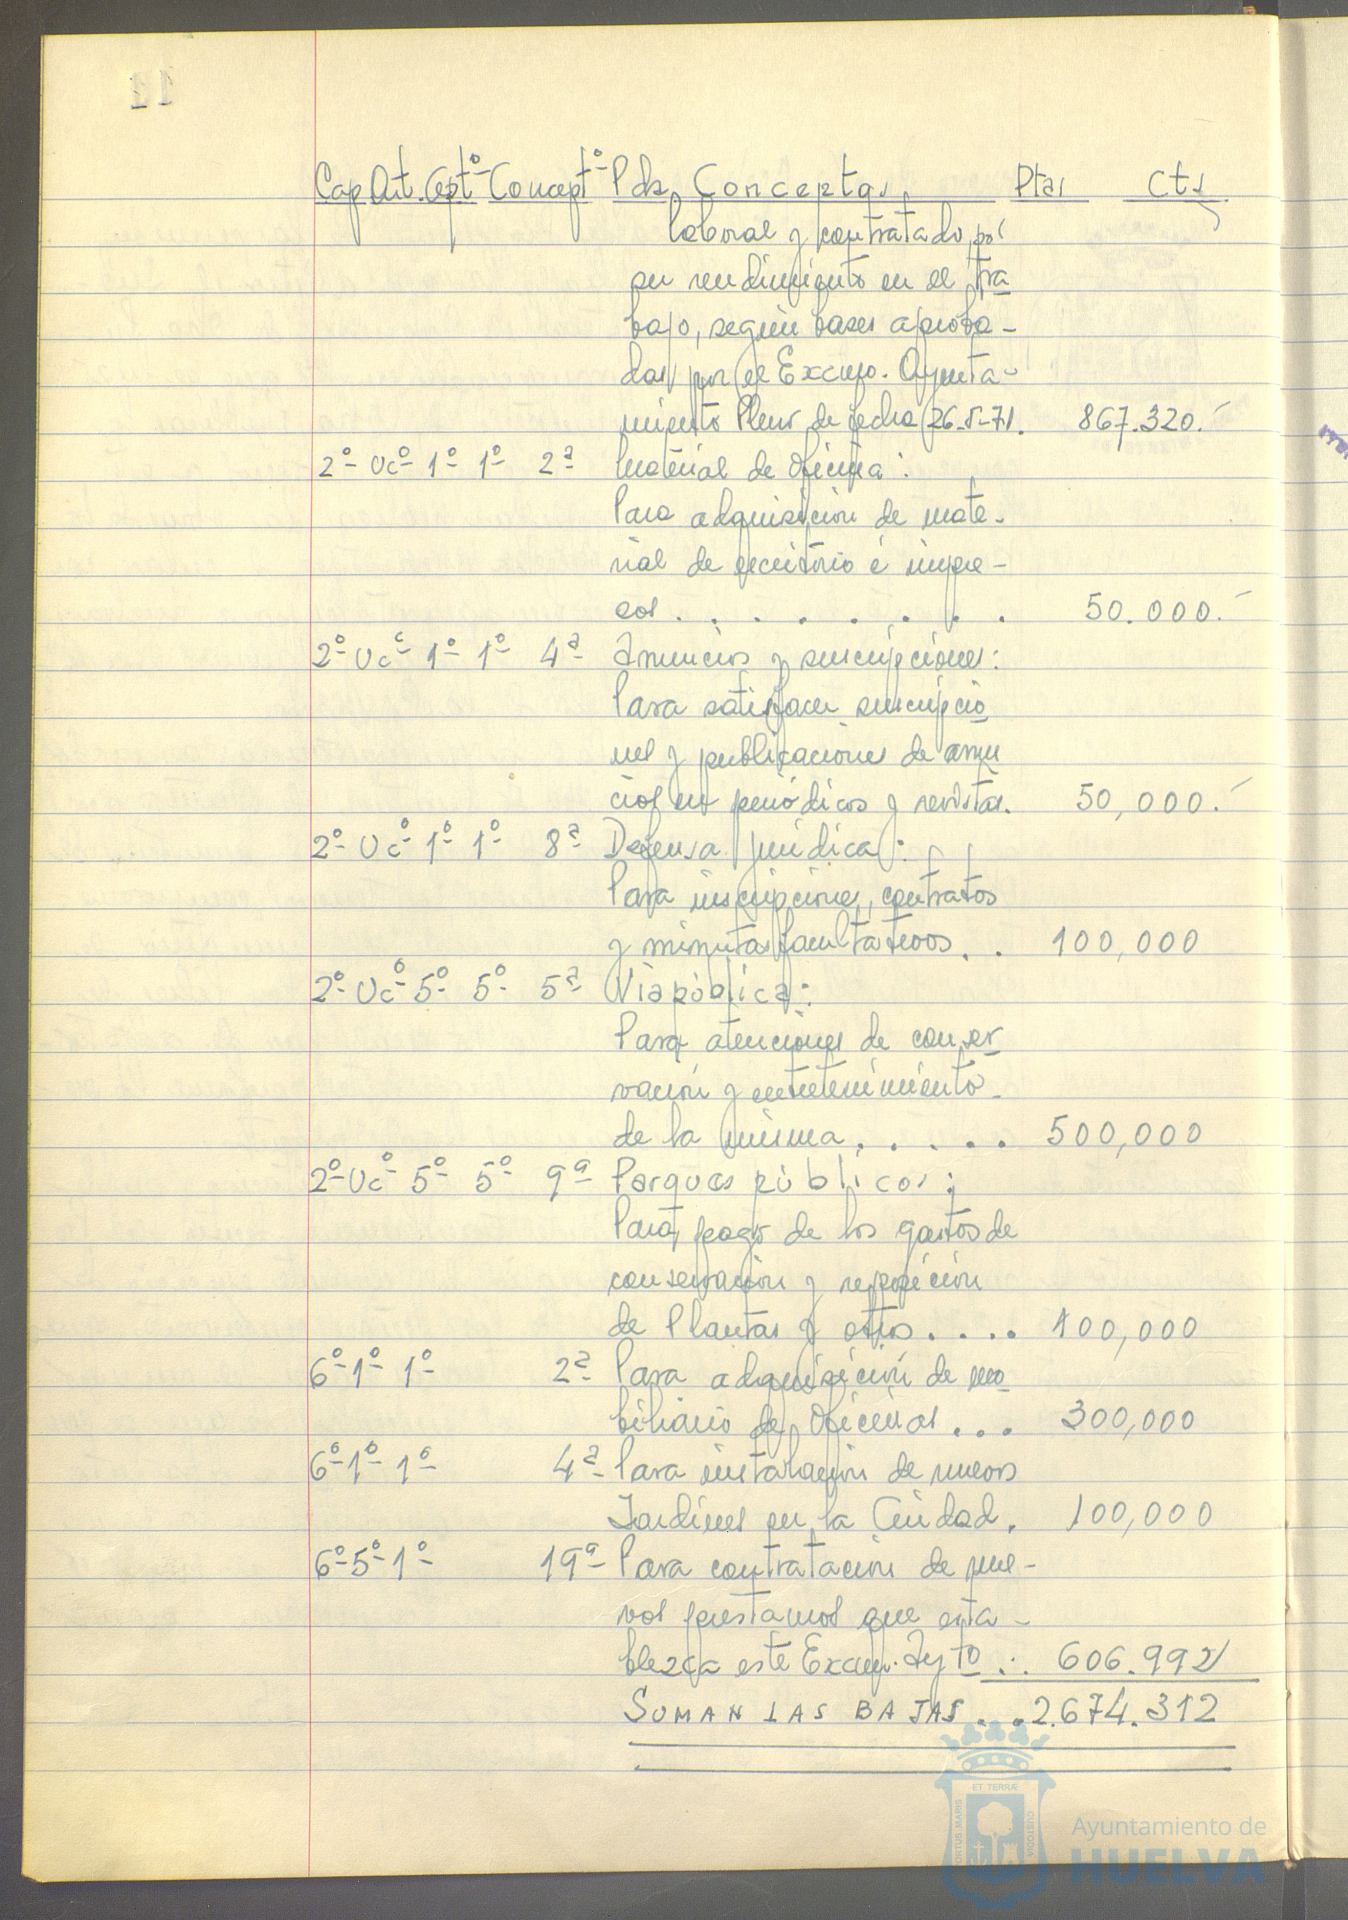 11
Cap Art. Cpt.º Concept.º Pda Conceptos Ptas Cts
laboral y contratado, por
su rendimiento en el tra
bajo, según bases aproba-
das por el Excmo. Ayunta-
miento Pleno de fecha 26-5-71. 867.320.-
2º Uc.º 1º 1º 2ª Material de Oficina:
Para adquisición de mate-
rial de escritorio é impre-
sos. . . . . . . . . 50.000.-
2º Uc.º 1º 1º 4ª Anuncios y suscripciones:
Para satisfacer suscripcio
nes y publicaciones de anun
cios en periódicos y revistas. 50,000.-
2º Uc.º 1º 1º 8ª Defensa jurídica:
Para inscripciones, contratos
y minutas facultativos. . 100,000
2º Uc.º 5º 5º 5ª Via pública:
Para atenciones de conser
vación y entretenimiento
de la misma. . . . . 500,000
2º Uc.º 5º 5º 9ª Parques públicos:
Para pago de los gastos de
conservación y reposición
de Plantas y otros. . . . 100,000
6º 1º 1º 2ª Para adquisición de mo
biliario de Oficinas . . . 300,000
6º 1º 1º 4ª Para instalación de nuevos
Jardines en la Ciudad. 100,000
6º 5º 1º 19ª Para contratación de nue-
vos prestamos que esta-
blezca este Excmo. Aytº . . 606.992
SUMAN LAS BAJAS. . . 2.674.312
ET TERRÆ
PORTUS MARIS
CUSTODIA
Ayuntamiento de
HUELVA